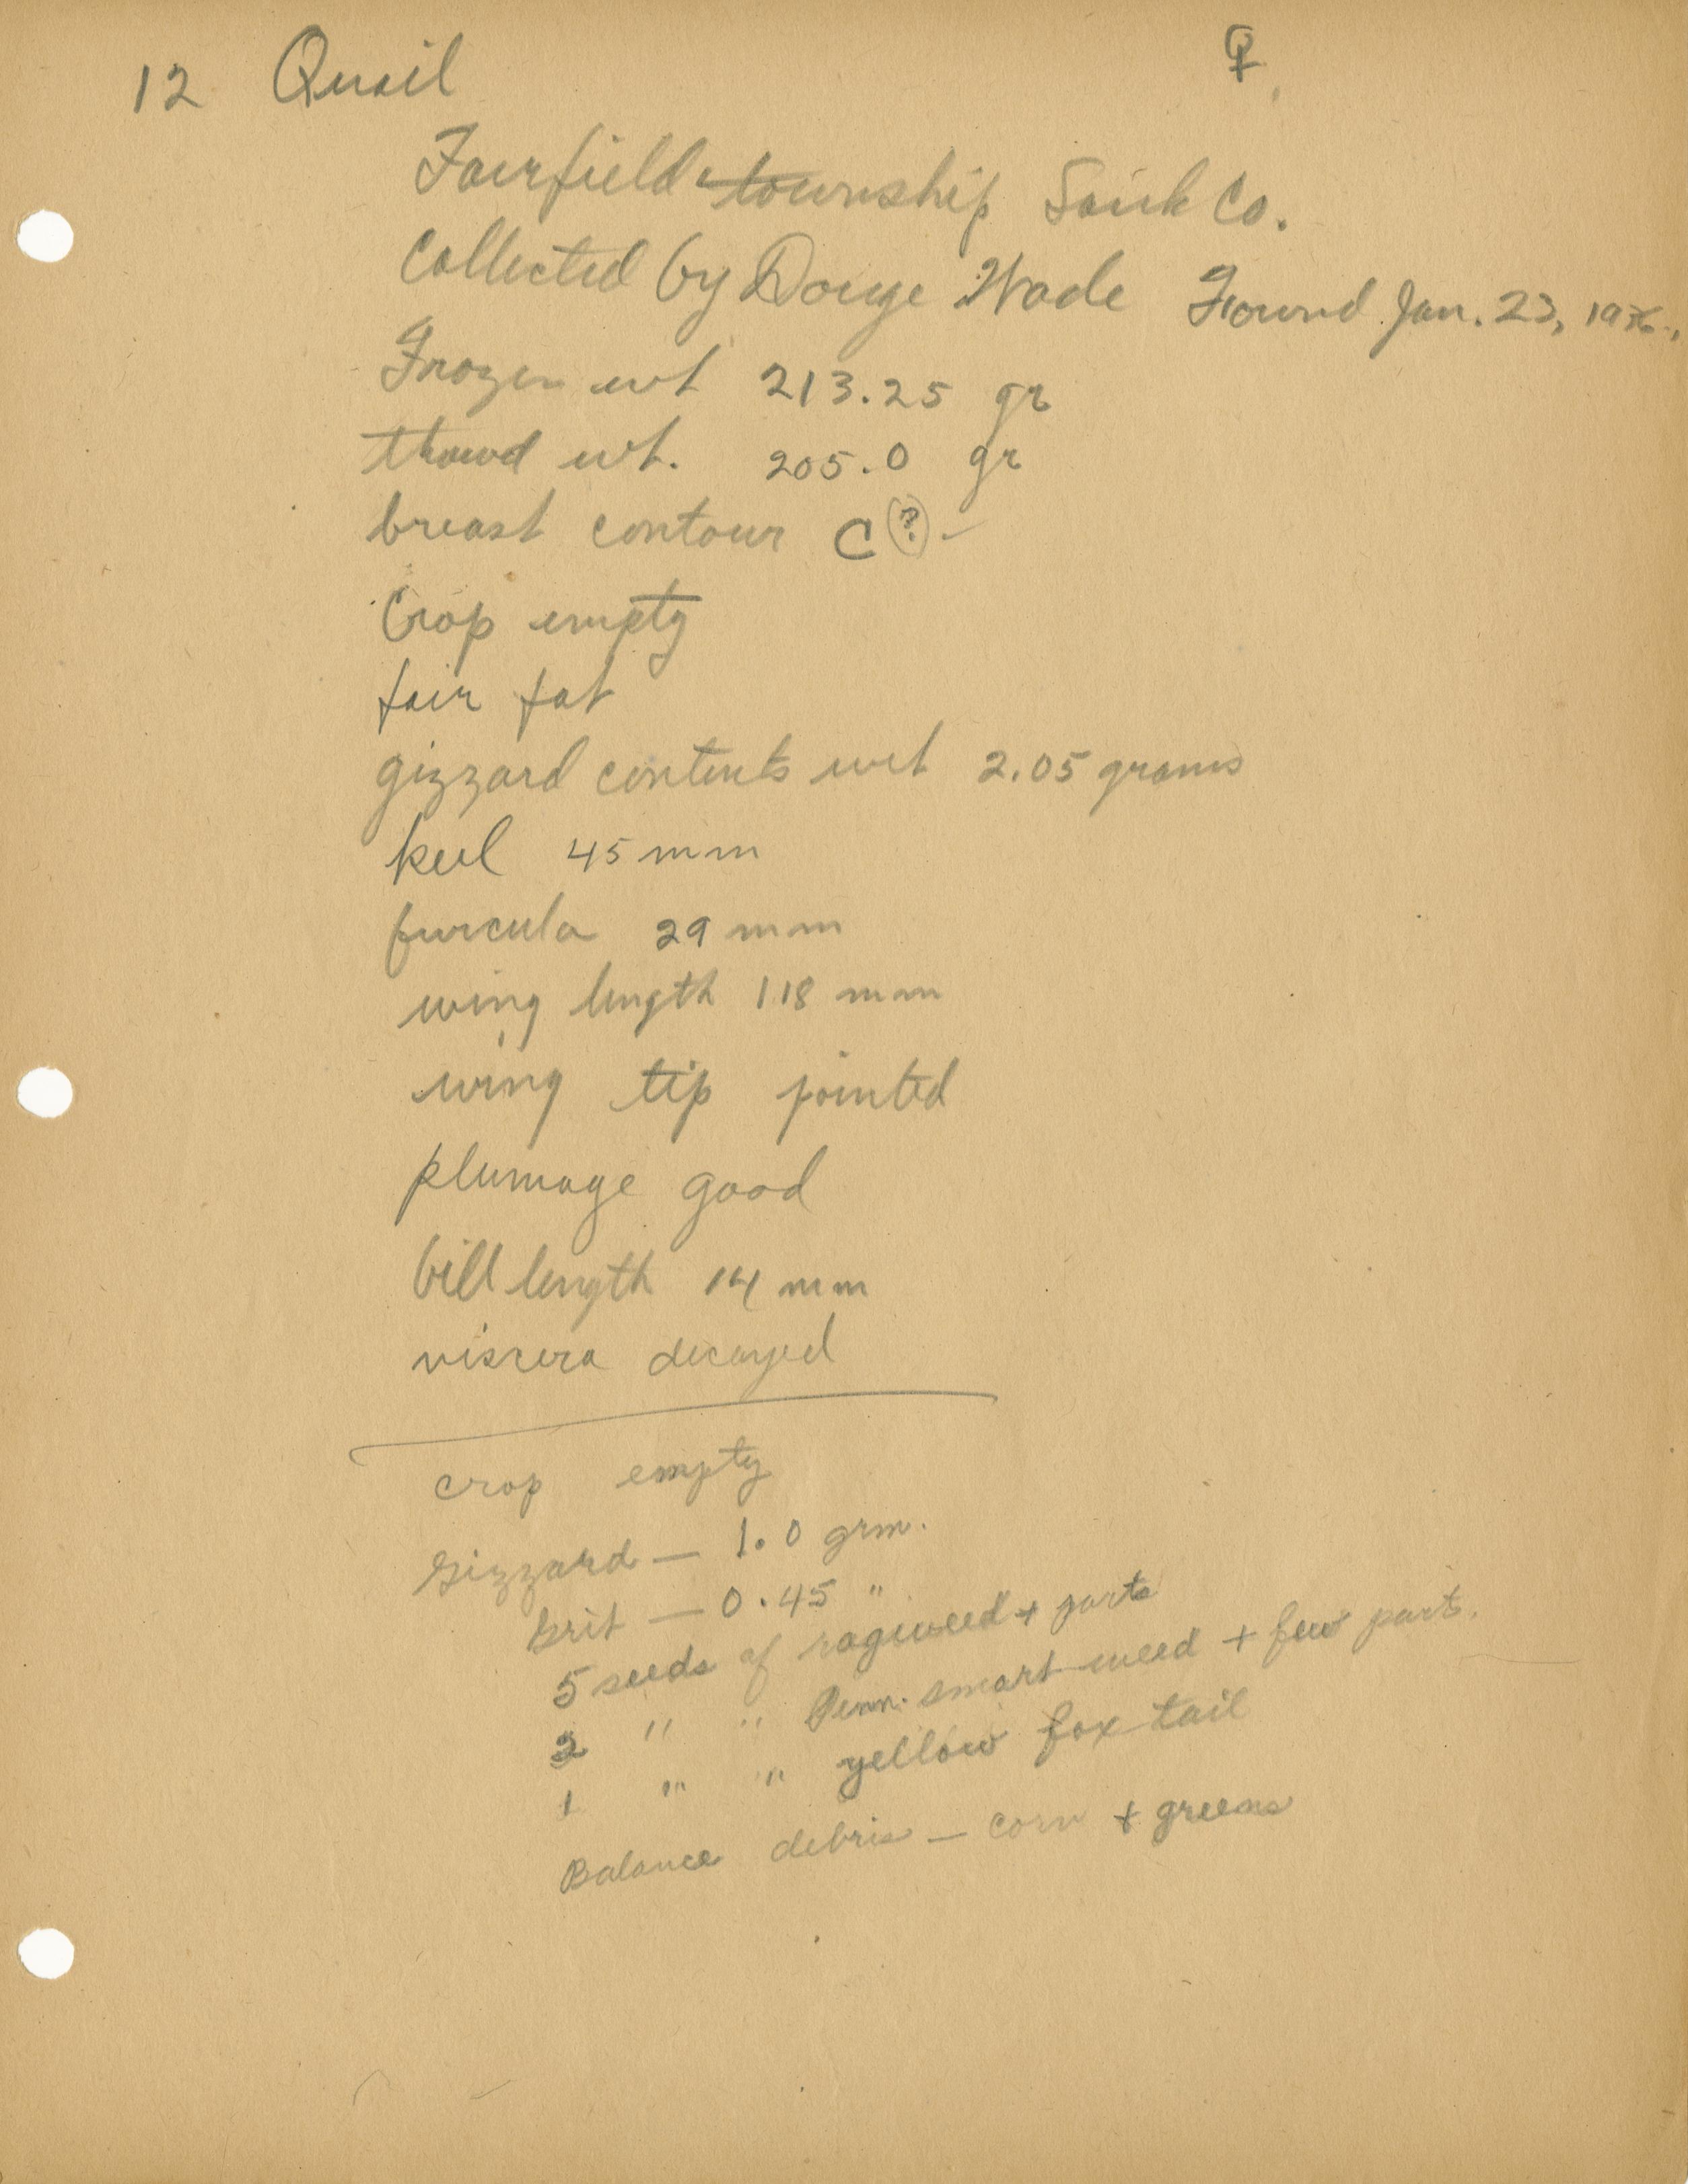 12 Quail ♀
Fairfield township Sauk Co.
Collected by Douge Wade Found Jan. 23, 1936.
Frozen wt 213.25 gr
thawd wt. 205.0 gr
breast contour C (?) -
Crop empty
fair fat
gizzard contents wet 2.05 grams
keel 45 mm
furcula 29 mm
wing length 118 mm
wing tip pointed
plumage good
bill length 14 mm
viscera decayed
crop empty
Gizzard — 1.0 grm.
Grit — 0.45 "
5 seeds of ragweed + parts
2 " " Penn. smart weed + few parts.
1 " " yellow fox tail
Balance debris — corn + greens